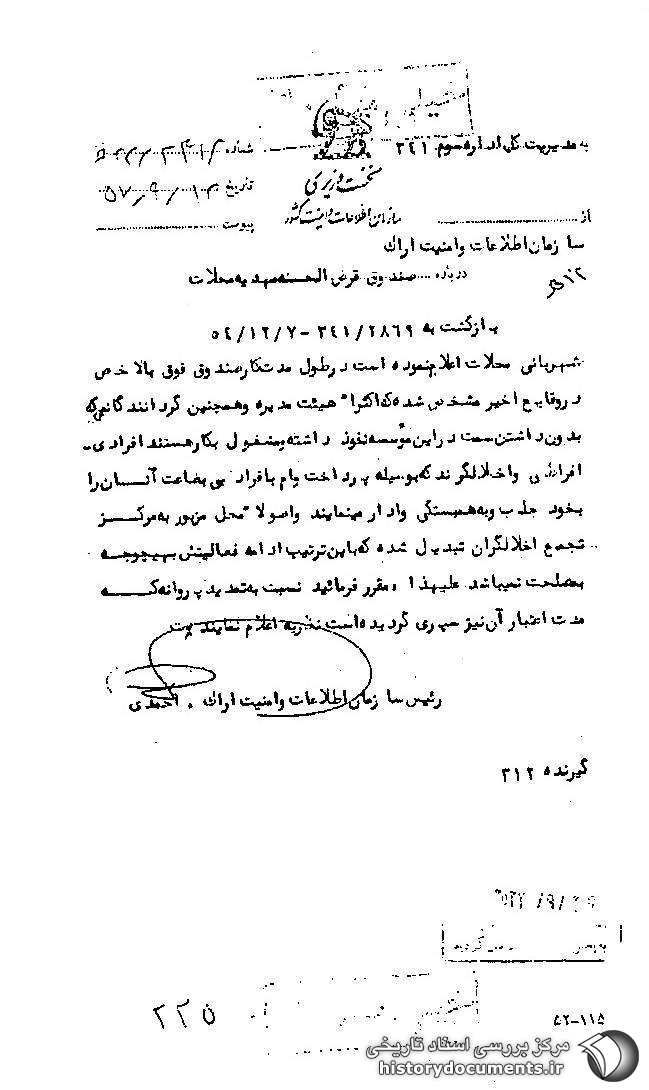 به مدیریت کل اداره سوم ۳۴۱
شماره
نخست وزیری
تاریخ ۵۷/۹/۱۴
سازمان اطلاعات و امنیت کشور
از
پیوست
سازمان اطلاعات و امنیت اراک
درباره صندوق قرض الحسنه مهدیه محلات
بازگشت به ۳٤۱/۲۸٦۹ - ۵٤/۱۲/۷
شهربانی محلات اعلام نموده است در طول مدت کار صندوق فوق بالاخص
در وقایع اخیر مشخص شده که اکثرا" هیئت مدیره و همچنین گردانندگانی که
بدون داشتن سمت در این مؤسسه نفوذ داشته و مشغول بکار هستند افرادی
افراطی و اخلالگرند که بوسیله پرداخت وام بافراد بی بضاعت آنسان را
بخود جلب و به همبستگی وادار مینمایند و اصولا" محل مزبور به مرکز
تجمع اخلالگران تبدیل شده که باین ترتیب ادامه فعالیتش بهیچوجه
بمصلحت نمیباشد علیهذا مقرر فرمائید نسبت به تمدید پروانه که
مدت اعتبار آن نیز سپری گردیده است نظریه اعلام نمایند
رئیس سازمان اطلاعات و امنیت اراک . احمدی
گیرنده ۳۱۲
۲۲۵
۵۲-۱۱۵
مرکز بررسی اسناد تاریخی
historydocuments.ir